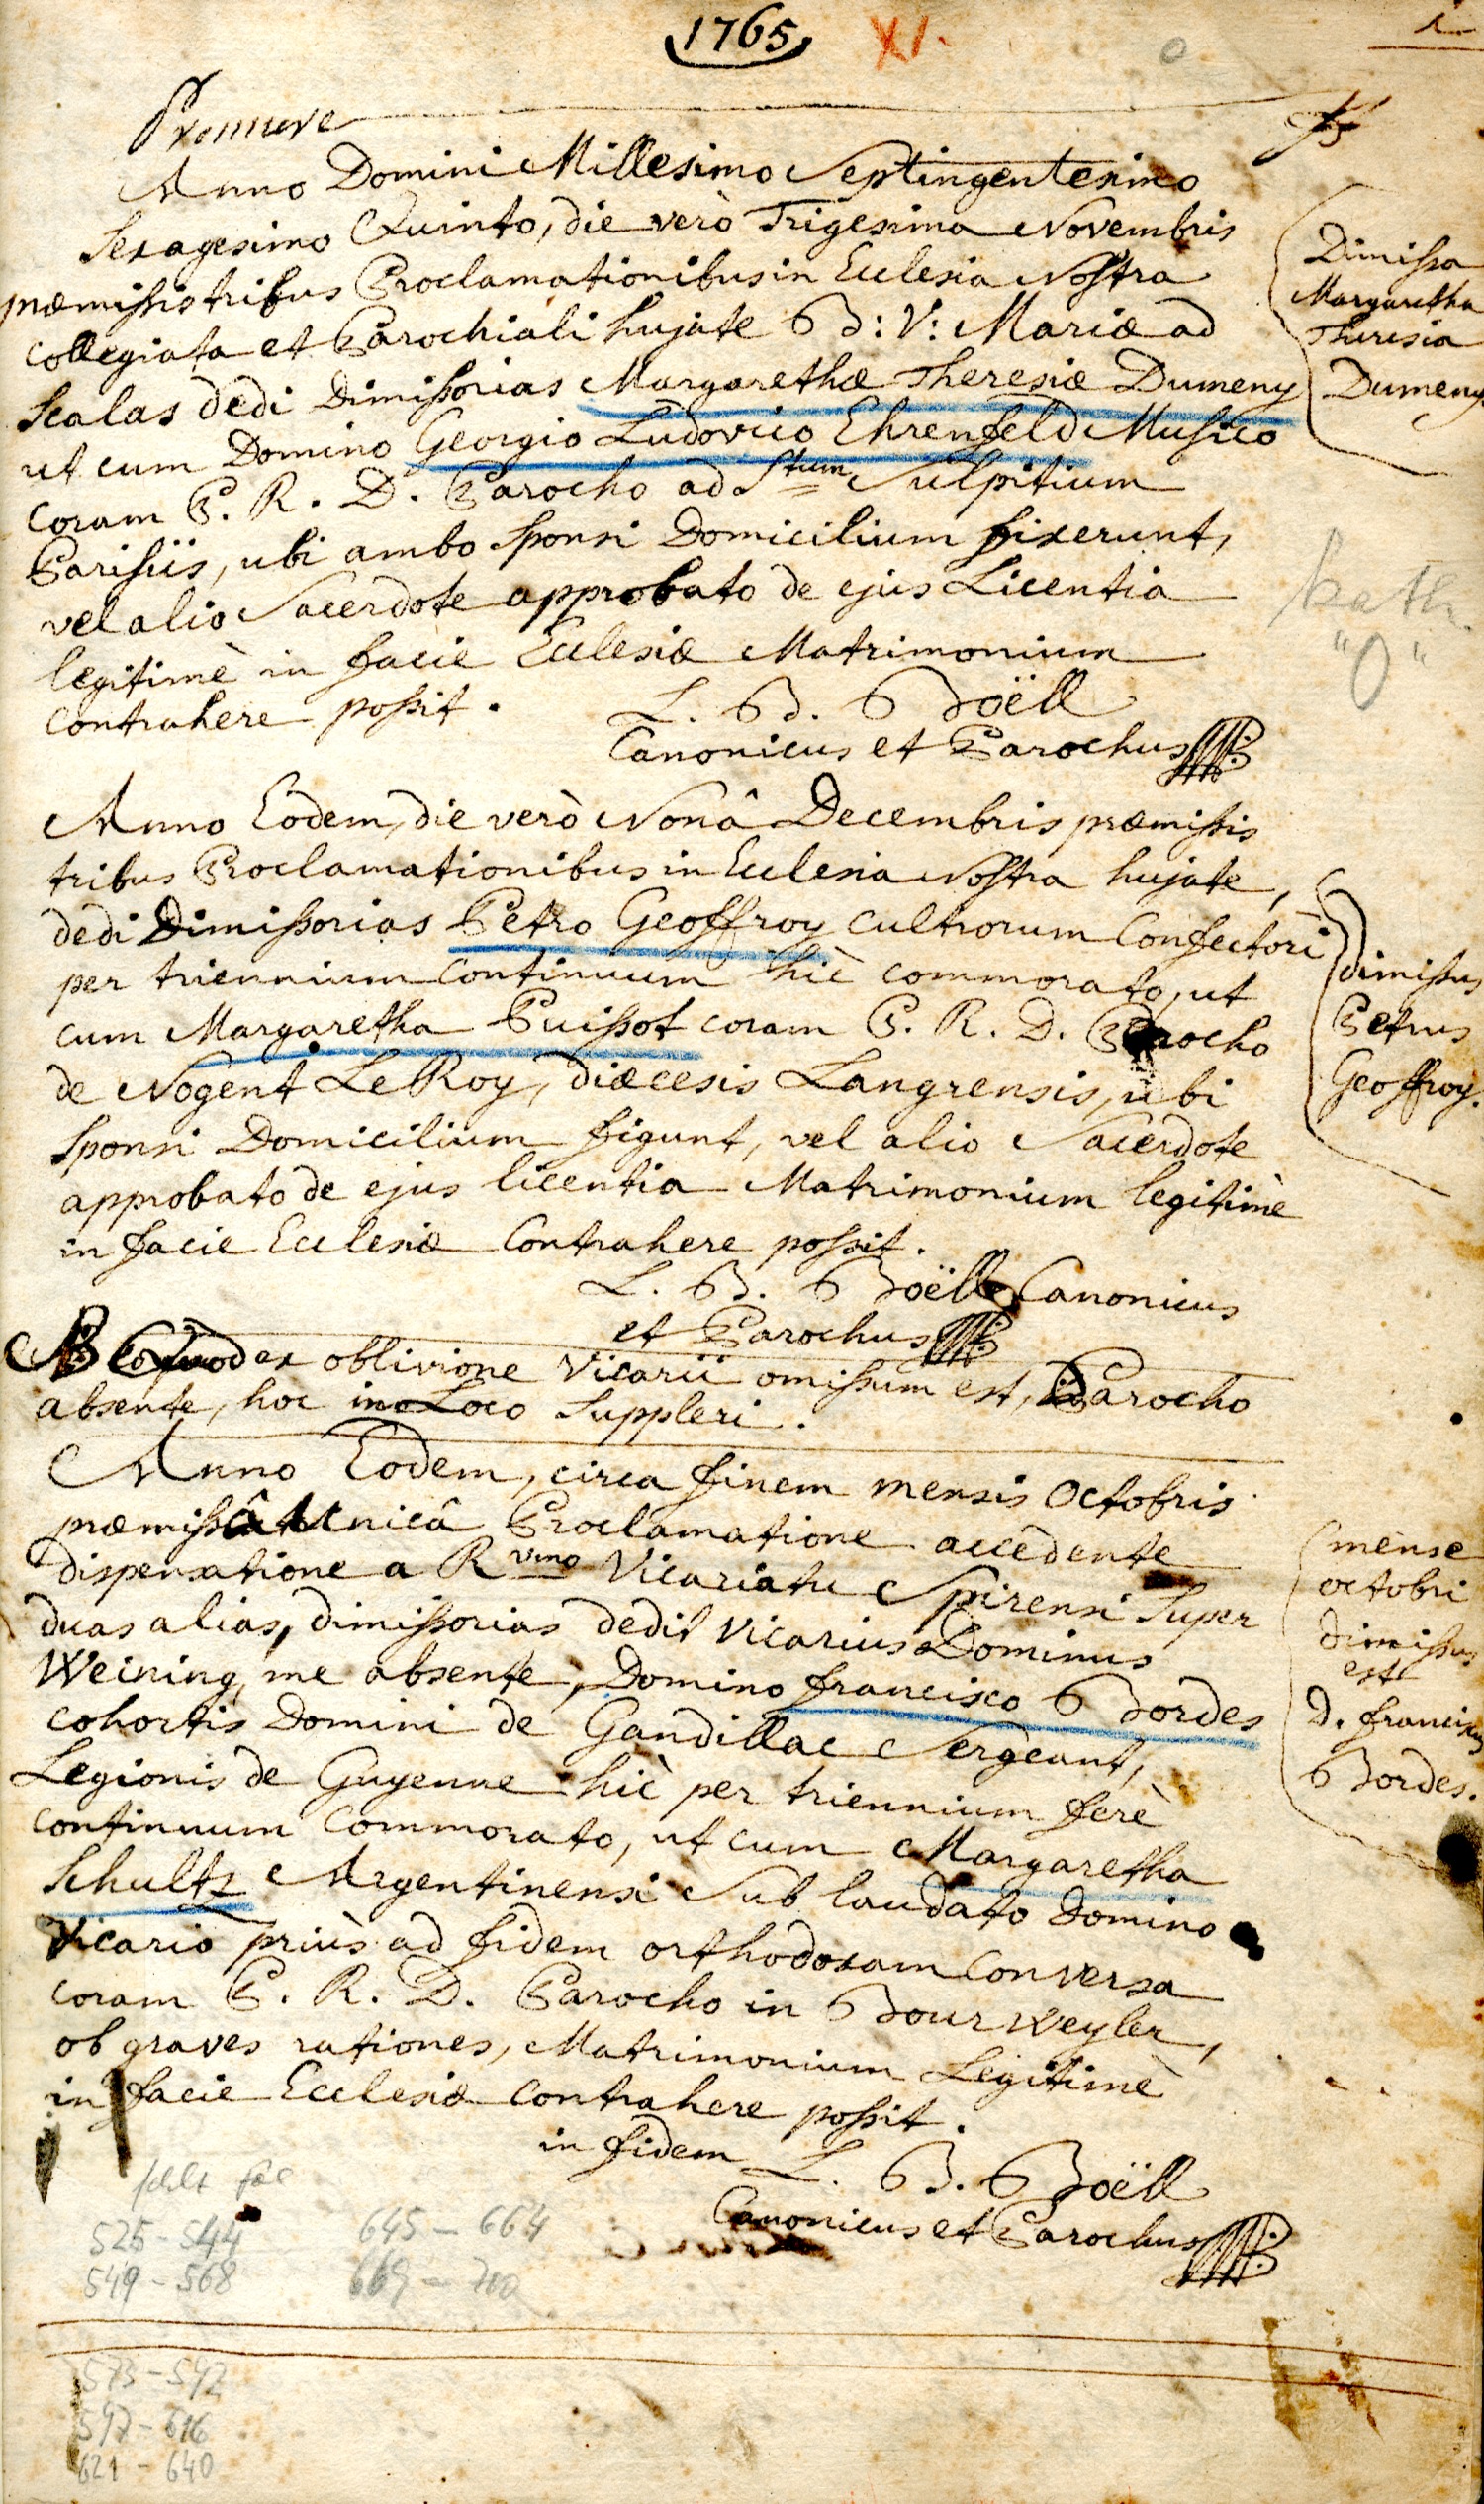 1765
XI.
1
Premiere
Anno Domini Millesimo Septingentesimo
Sexagesimo Quinto, die verò Trigesima Novembris
præmissis tribus Proclamationibus in Ecclesia Nostra
Collegiata et Parochiali hujate B: V: Mariæ ad
Scalas dedi Dimissorias Margarethæ Theresiæ Dumeny
ut cum Domino Georgio Ludovico Ehrenfeld Musico
coram P. R. D. Parocho ad Stum Sulpitium
Parisiis, ubi ambo Sponsi Domicilium fixerunt,
vel alio Sacerdote approbato de ejus Licentia
legitimè in facie Ecclesiæ Matrimonium
contrahere possit.
L. B. Boëll
Canonicus et Parochus
Dimissa
Margaretha
Theresia
Dumeny
kath.
"0"
Anno Eodem, die verò Nonâ Decembris præmissis
tribus Proclamationibus in Ecclesia Nostra hujate,
dedi Dimissorias Petro Geoffroy cultrorum Confectori
per triennium continuum hìc commorato, ut
cum Margaretha Puissot coram P. R. D. Parocho
de Nogent Le Roy, diæcesis Langrensis, ubi
Sponsi Domicilium figunt, vel alio Sacerdote
approbato de ejus licentia Matrimonium legitimè
in facie Ecclesiæ Contrahere possit.
L. B. Boëll Canonicus
et Parochus
dimissus
Petrus
Geoffroy.
NB Quod ex oblivione Vicarii omissum est, Parocho
absente, hoc in Loco Suppleri.
Anno Eodem, circa finem mensis Octobris
præmissâ Unicâ Proclamatione accedente
dispensatione a Rvmo Vicariatu Spirensi Super
duas alias, dimissorias dedit Vicarius Dominus
Weining, me absente, Domino francisco Bordes
cohortis Domini de Gandillac Sergeant,
Legionis de Guyenne hìc per triennium ferè
continuum Commorato, ut cum Margaretha
Schultz Argentinensi Sub laudato Domino
Vicario priùs ad fidem orthodoxam Conversa
coram P. R. D. Parocho in Bourweyler,
ob graves rationes, Matrimonium Legitimè
in facie Ecclesiæ contrahere possit.
in fidem L. B. Boëll
Canonicus et Parochus
mense
octobri
dimissus
est
D. franciscus
Bordes.
fehlt
525 - 544
549 - 568
645 - 664
669 - 700
573 - 592
597 - 616
621 - 640